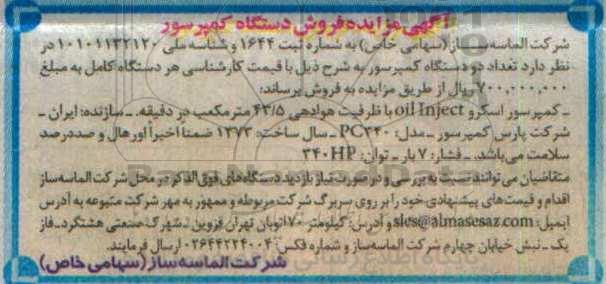 آگهی مزایده فروش دستگاه کمپرسور
شرکت الماسه ساز (سهامی خاص) به شماره ثبت ۱۶۴۴ و شناسه ملی ۱۰۱۰۱۱۳۲۱۲۰ در
نظر دارد تعداد دو دستگاه کمپرسور به شرح ذیل با قیمت کارشناسی هر دستگاه کامل به مبلغ
۷۰۰,۰۰۰,۰۰۰ ریال از طریق مزایده به فروش برساند:
ـ کمپرسور اسکرو oil Inject با ظرفیت هوادهی ۴۳/۵ مترمکعب در دقیقه. ـ سازنده: ایران ـ
شرکت پارس کمپرسور ـ مدل: PC۲۴۰ ـ سال ساخت: ۱۳۷۳ ضمنا اخیرا اورهال و صددرصد
سلامت می‌باشد. ـ فشار: ۷ بار ـ توان: ۳۴۰HP
متقاضیان می توانند نسبت به بررسی و در صورت نیاز بازدید دستگاه‌های فوق الذکر در محل شرکت الماسه‌ساز
اقدام و قیمت‌های پیشنهادی خود را بر روی سربرگ شرکت مربوطه و ممهور به مهر شرکت متبوعه به آدرس
ایمیل: sles@almasesaz.com و آدرس: کیلومتر ۷۰ اتوبان تهران قزوین ـ شهرک صنعتی هشتگرد ـ فاز
یک ـ نبش خیابان چهارم شرکت الماسه‌ساز و شماره فکس: ۰۲۶۴۴۲۲۴۰۰۴ ارسال فرمایند.
شرکت الماسه ساز (سهامی خاص)